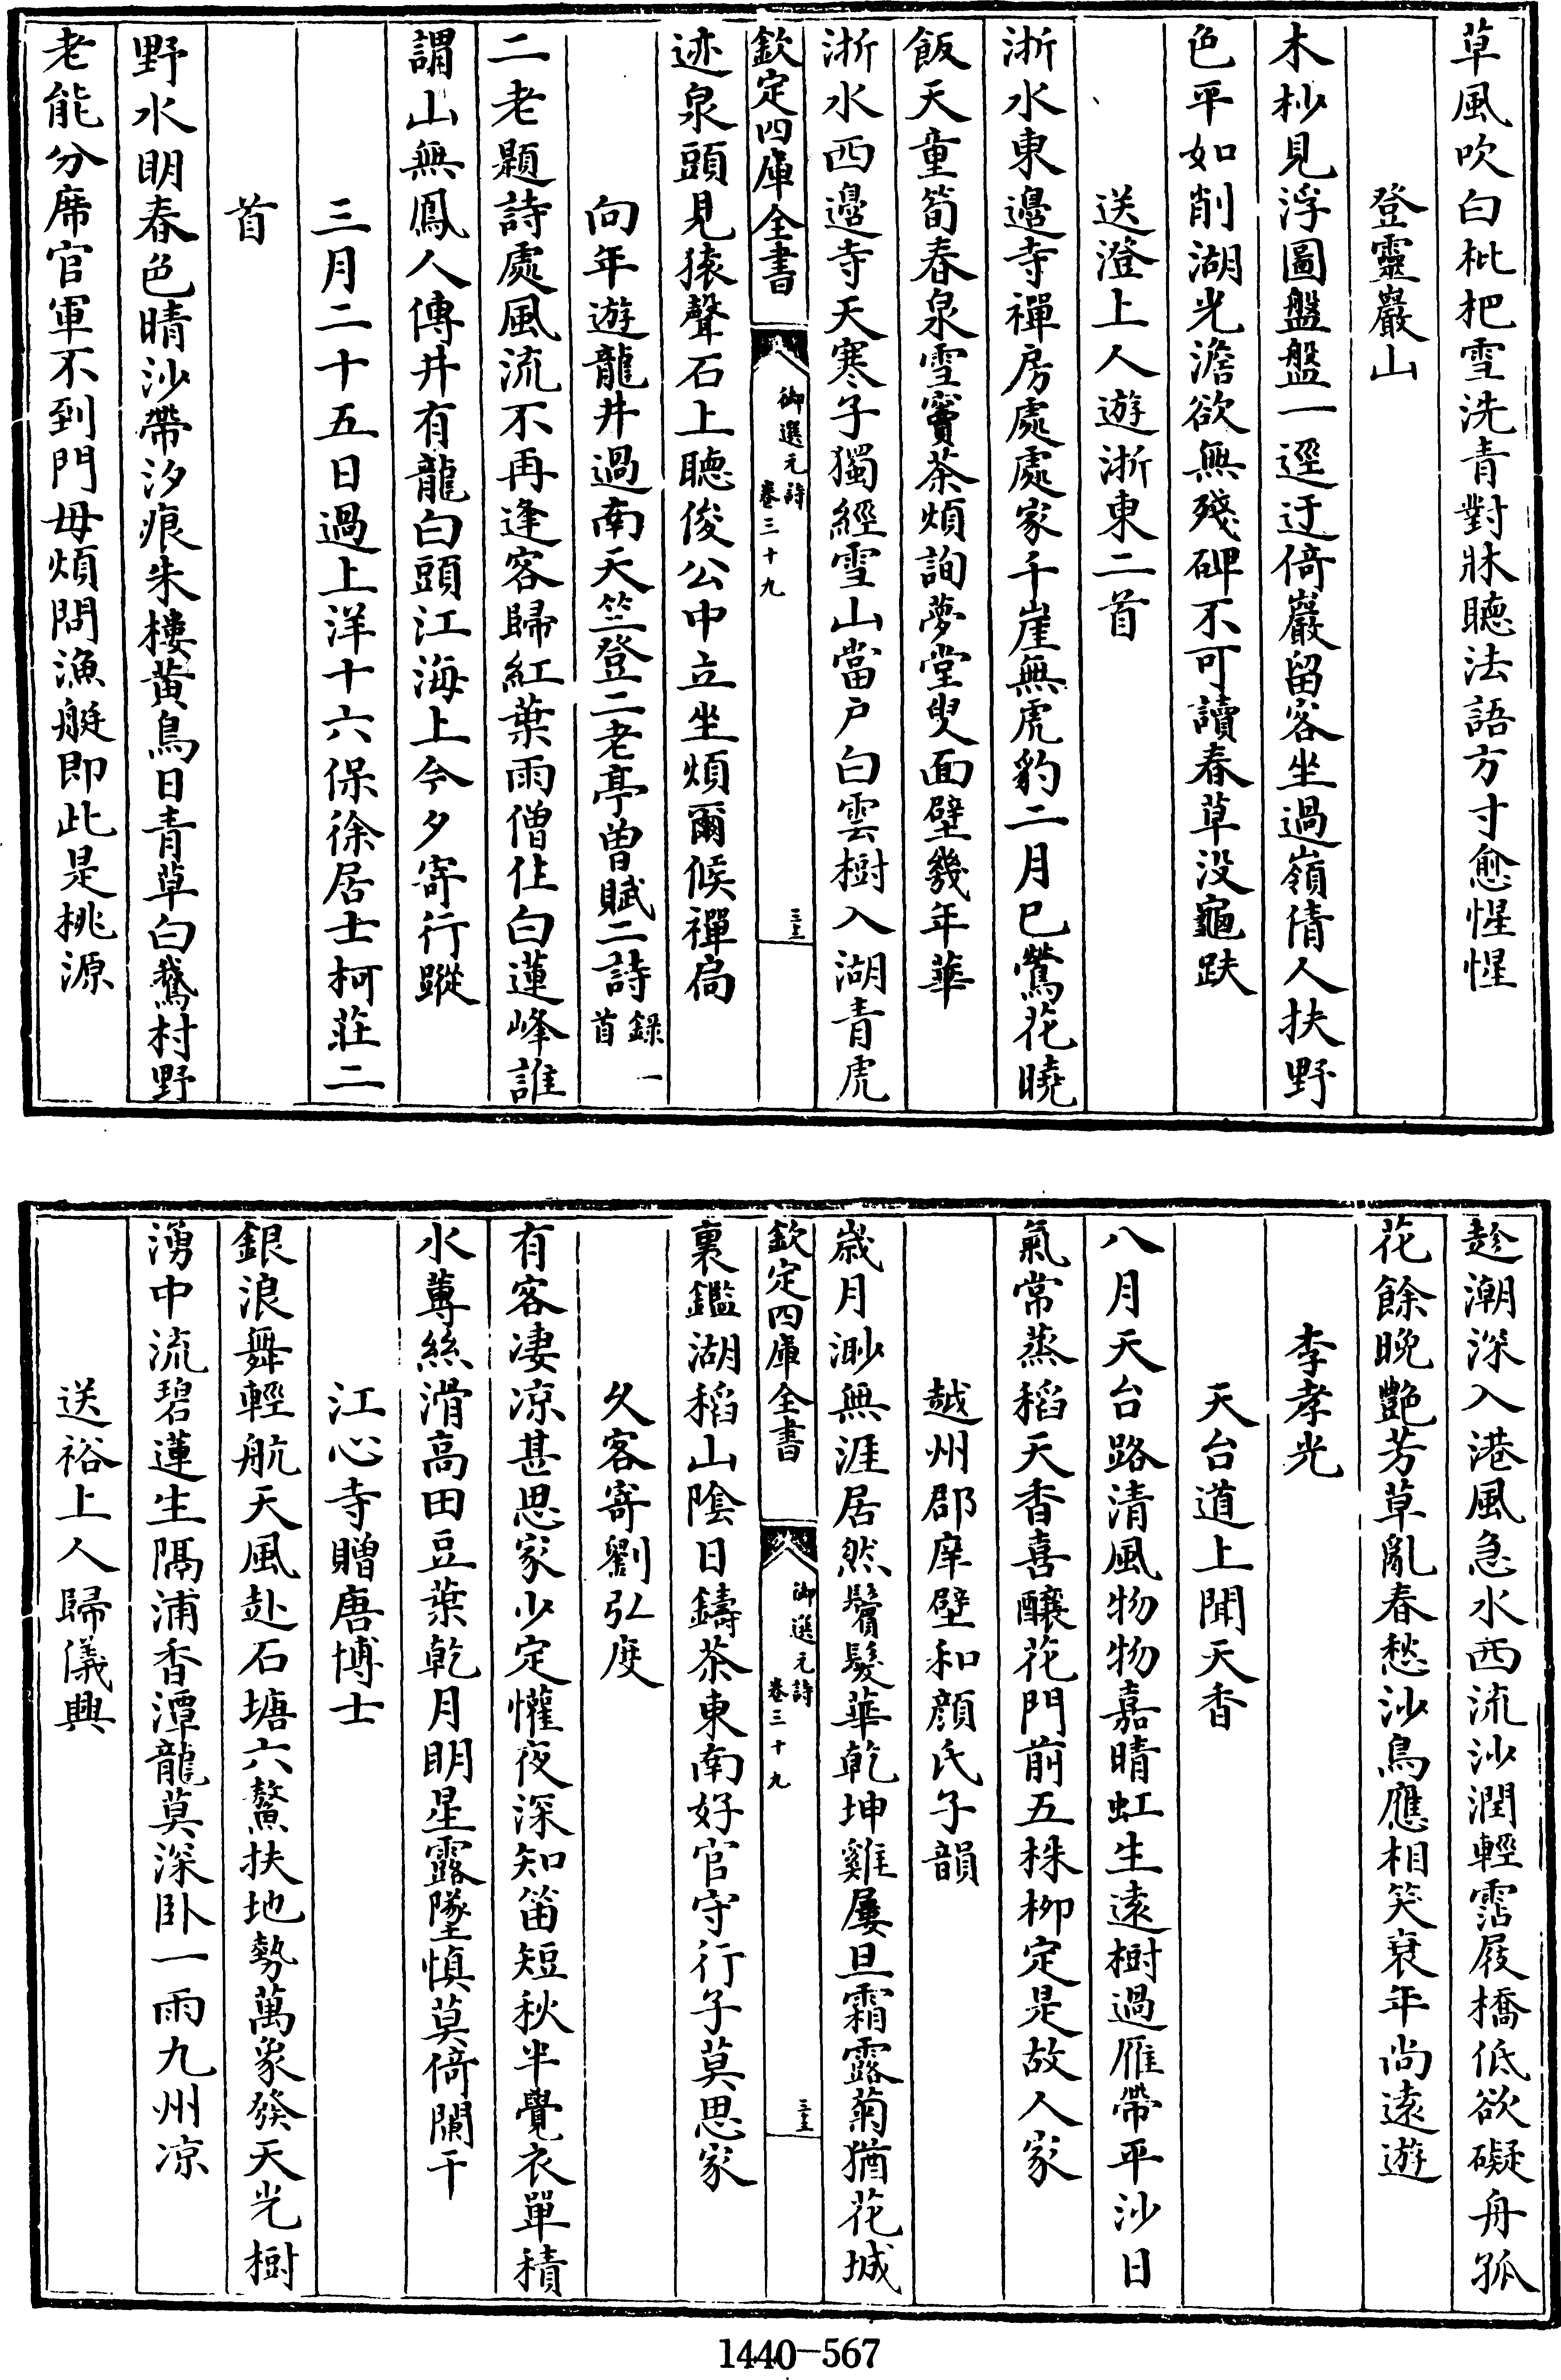 草風吹白枇杷雪洗青對牀聽法語方寸愈惺惺
登靈巖山
木杪見浮圖盤盤一逕迂倚巖留客坐過嶺倩人扶野
色平如削湖光澹欲無殘碑不可讀春草没龜趺
送澄上人遊浙東二首
浙水東邊寺禪房處處家千崖無虎豹二月已鶯花曉
飯天童筍春泉雪竇茶煩詢夢堂叟面壁幾年華
浙水西邊寺天寒子獨經雪山當户白雲樹入湖青虎
欽定四庫全書
御選元詩
卷三十九
三十五
迹泉頭見猿聲石上聽俊公中立坐煩爾候禪扃
向年遊龍井過南天竺登二老亭曽賦二詩錄一首
二老題詩處風流不再逢客歸紅葉雨僧住白蓮峰誰
謂山無鳳人傳井有龍白頭江海上今夕寄行蹤
三月二十五日過上洋十六保徐居士柯莊二
首
野水明春色晴沙帶汐痕朱樓黄鳥日青草白鵞村野
老能分席官軍不到門毋煩問漁艇即此是桃源
趁潮深入港風急水西流沙潤輕霑屐橋低欲礙舟孤
花餘晚艷芳草亂春愁沙鳥應相笑衰年尚遠遊
李孝光
天台道上聞天香
八月天台路清風物物嘉晴虹生遠樹過雁帶平沙日
氣常蒸稻天香喜釀花門前五株柳定是故人家
越州郡庠壁和顔氏子韻
歲月渺無涯居然鬢髮華乾坤雞屢旦霜露菊猶花城
欽定四庫全書
御選元詩
卷三十九
三十五
裏鑑湖稻山陰日鑄茶東南好官守行子莫思家
久客寄劉弘度
有客凄凉甚思家少定懽夜深知笛短秋半覺衣單積
水蓴絲滑高田豆葉乾月明星露墜慎莫倚闌干
江心寺贈唐博士
銀浪舞輕航天風赴石塘六鰲扶地勢萬象發天光樹
湧中流碧蓮生隔浦香潭龍莫深卧一雨九州凉
送裕上人歸儀興
1440-567